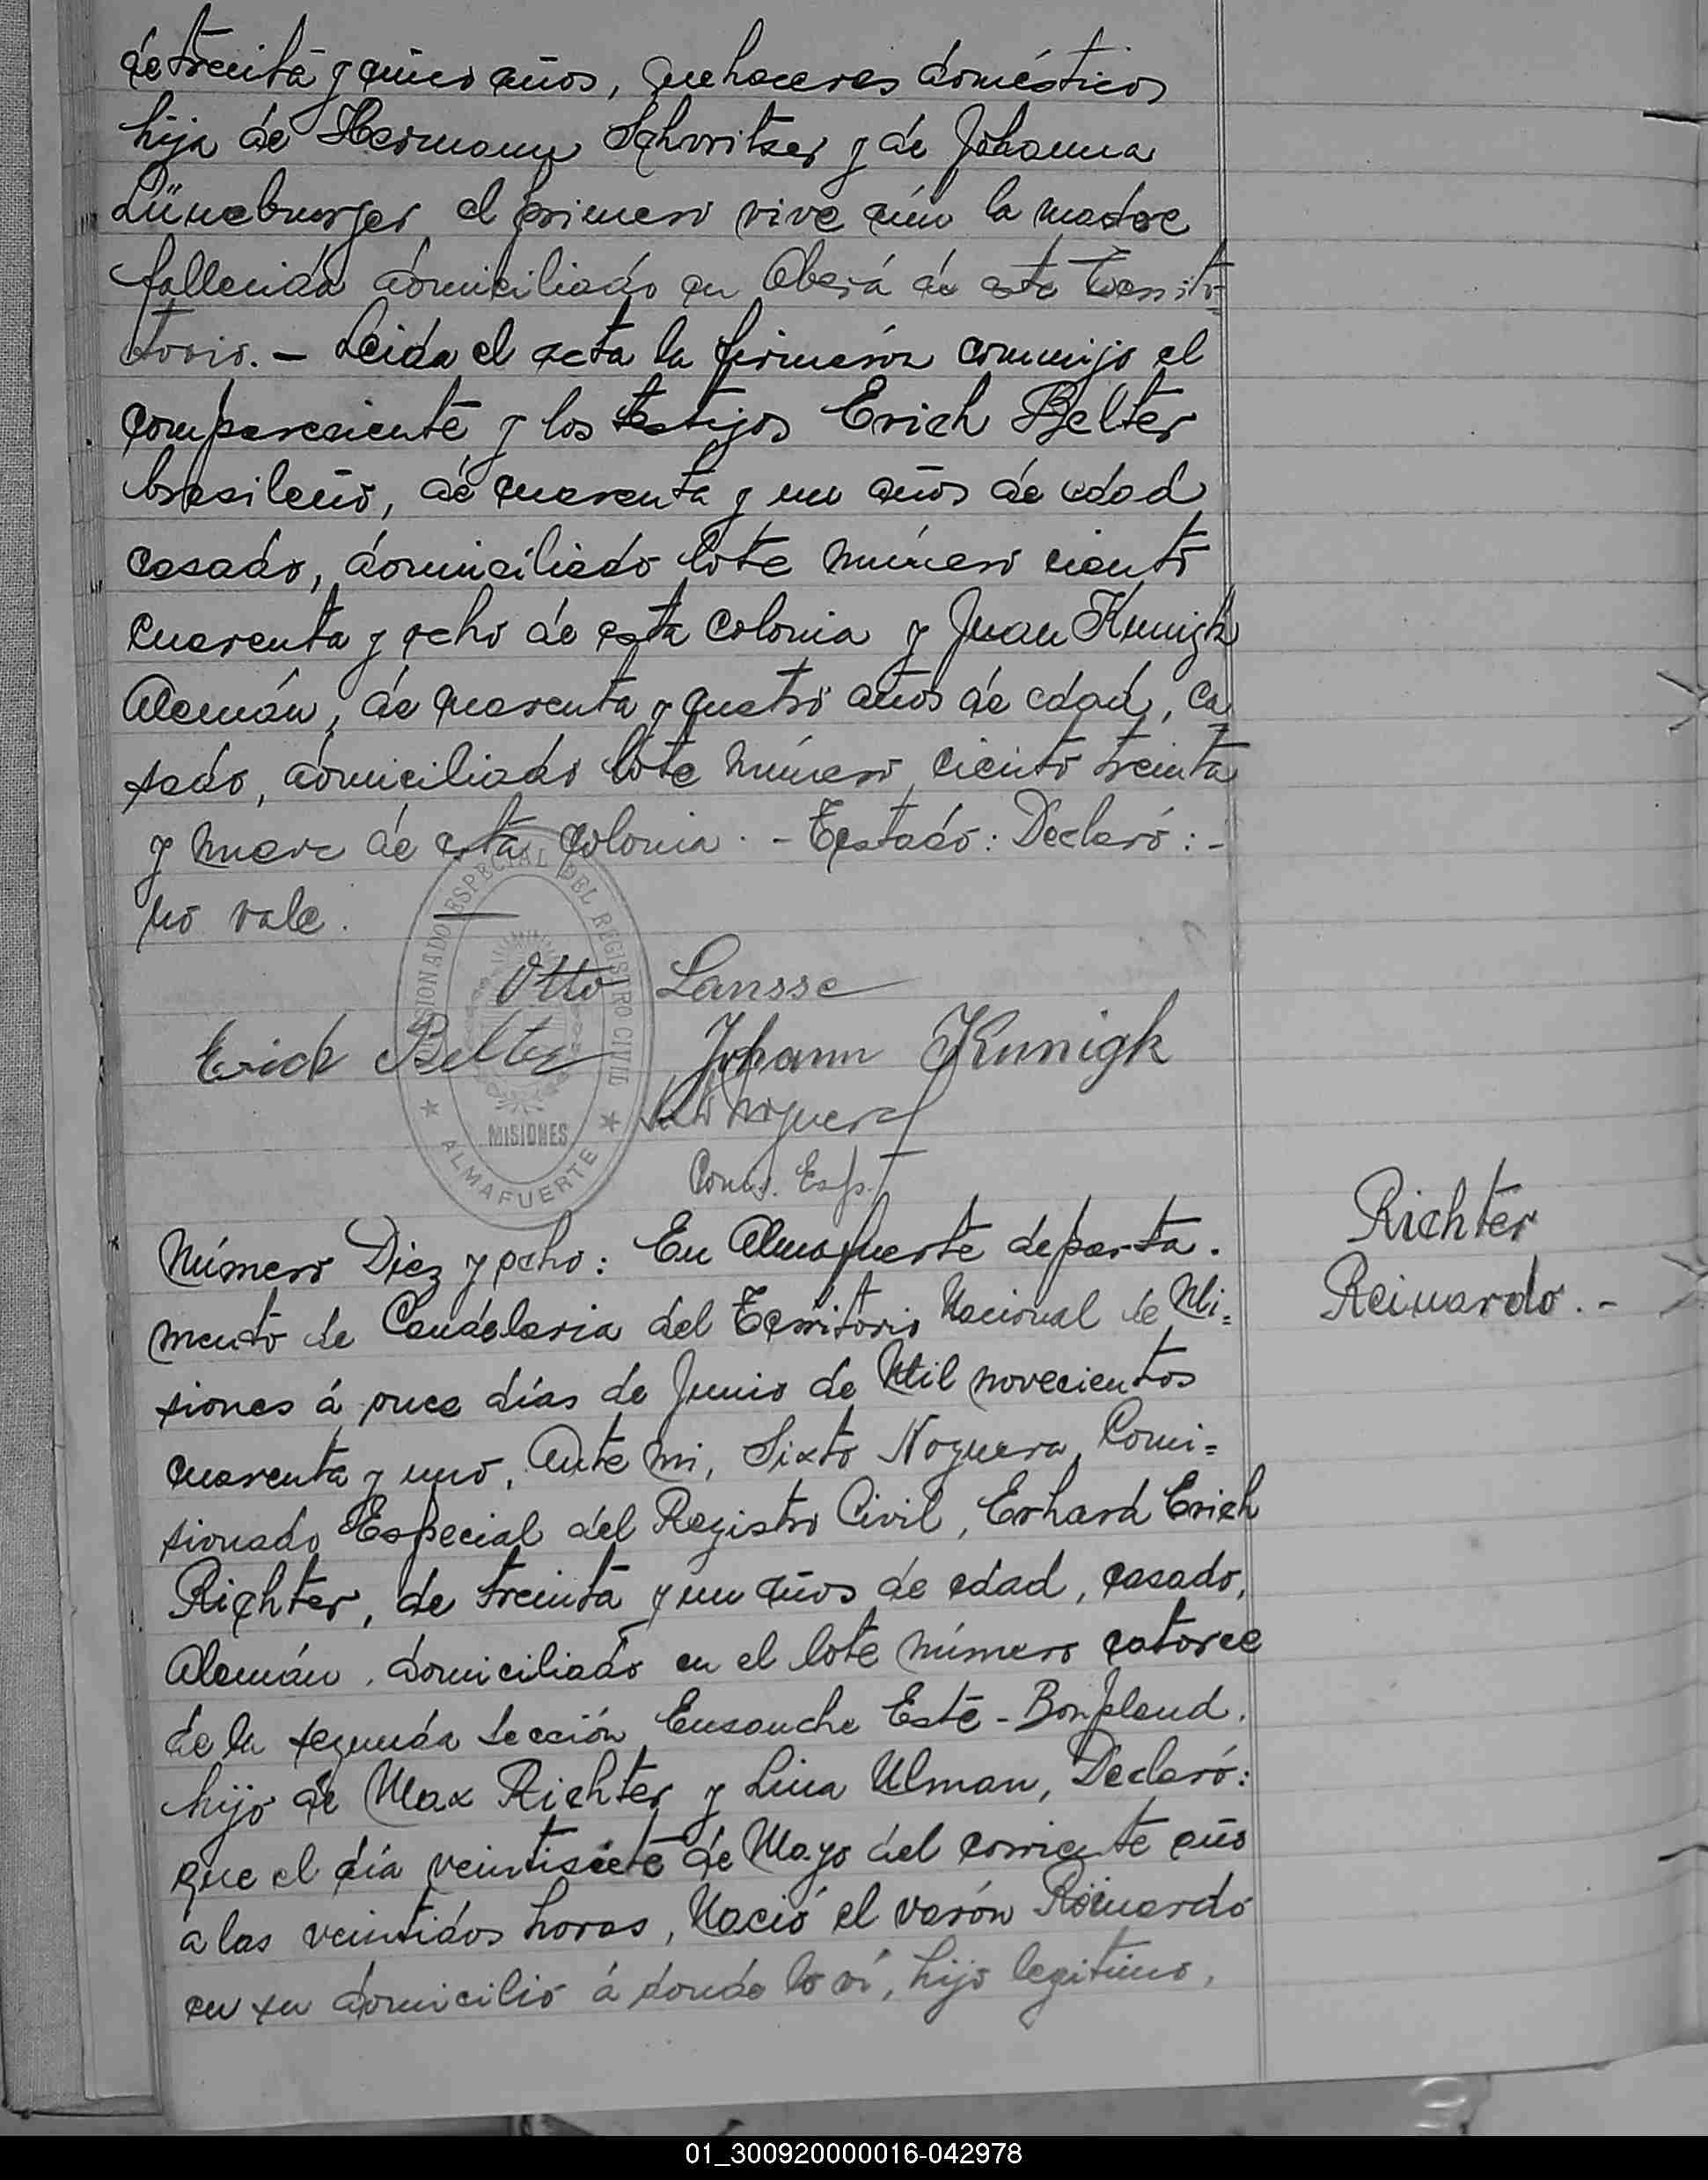 de treinta y cinco años, quehaceres domésticos
hija de Hermann Schwitzer y de Johanna
Lüneburger el primero vive aún la madre
fallecida domiciliado en Oberá de este Territo=
torio. - Leida el acta la firmarón conmigo el
compareciente y los testigos Erich Belter
brasileño, de cuarenta y un años de edad
casado, domiciliado lote número ciento
cuarenta y ocho de esta colonia y Juan Kunigk
Alemán, de cuarenta y cuatro años de edad, ca
sado, domiciliado lote número ciento treinta
y nueve de esta colonia. - Testado: Declaró: -
no vale.
COMISIONADO ESPECIAL DEL REGISTRO CIVIL
MISIONES
★ ALMAFUERTE ★
Otto Lansse
Erich Belter Johann Kunigk
Sixto Noguera
Comis. Esp.
Richter
Reinardo. -
Número Diez y ocho: En Almafuerte departa.
mento de Candelaria del Territorio Nacional de Mi=
siones á once días de Junio de Mil novecientos
cuarenta y uno, Ante mi, Sixto Noguera, Comi=
sionado Especial del Registro Civil, Erhard Erich
Richter, de treinta y un años de edad, casado,
Alemán, domiciliado en el lote número catorce
de la segunda sección Ensanche Este - Bonpland,
hijo de Max Richter y Lina Ulman, Declaró:
que el día veintisiete de Mayo del corriente año
a las veintidos horas, Nació el varón Reinardo
en su domicilio á donde lo ví, hijo legitimo,
01_300920000016-042978